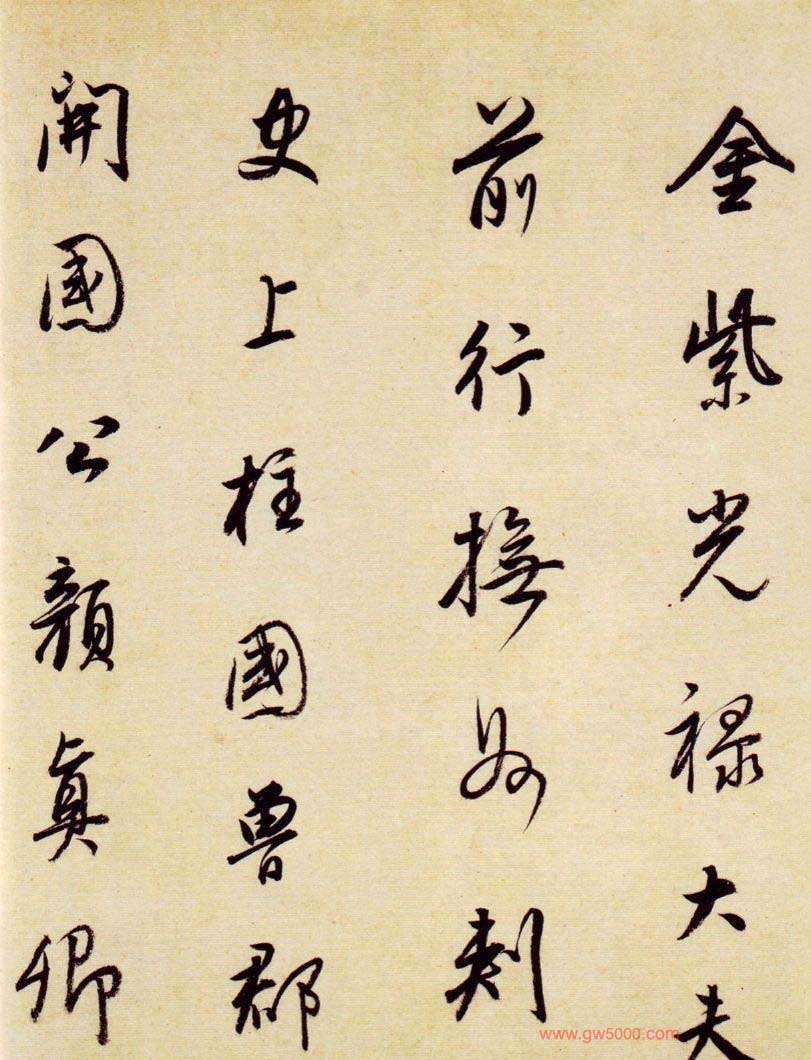 金紫光禄大夫
前行撫州刺
史上柱國魯郡
開國公顏真卿
www.gw5000.com